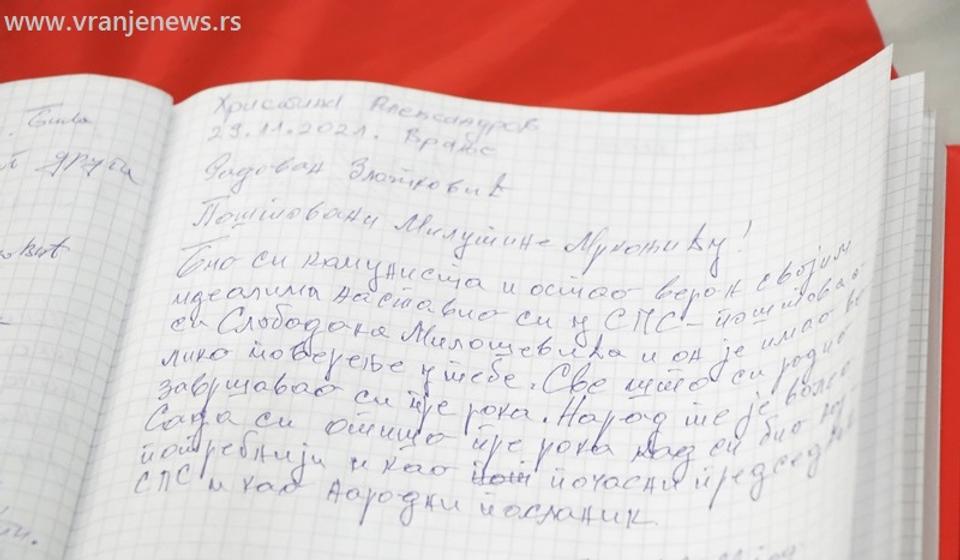 www.vranjenews.rs
Била
друга
Христина Александров
29.11.2021. Врање
Радован Златковић
Поштовани Милутине Мркоњићу!
Био си комуниста и остао веран својим
идеалима наставио си у СПС - поштовао
си Слободана Милошевића и он је имао ве
лико поверење у тебе. Све што си радио
завршавао си пре рока. Народ те је волео
Сада си отишо пре рока кад си био нај
потребнији и као почасни председник
СПС и као народни посланик.